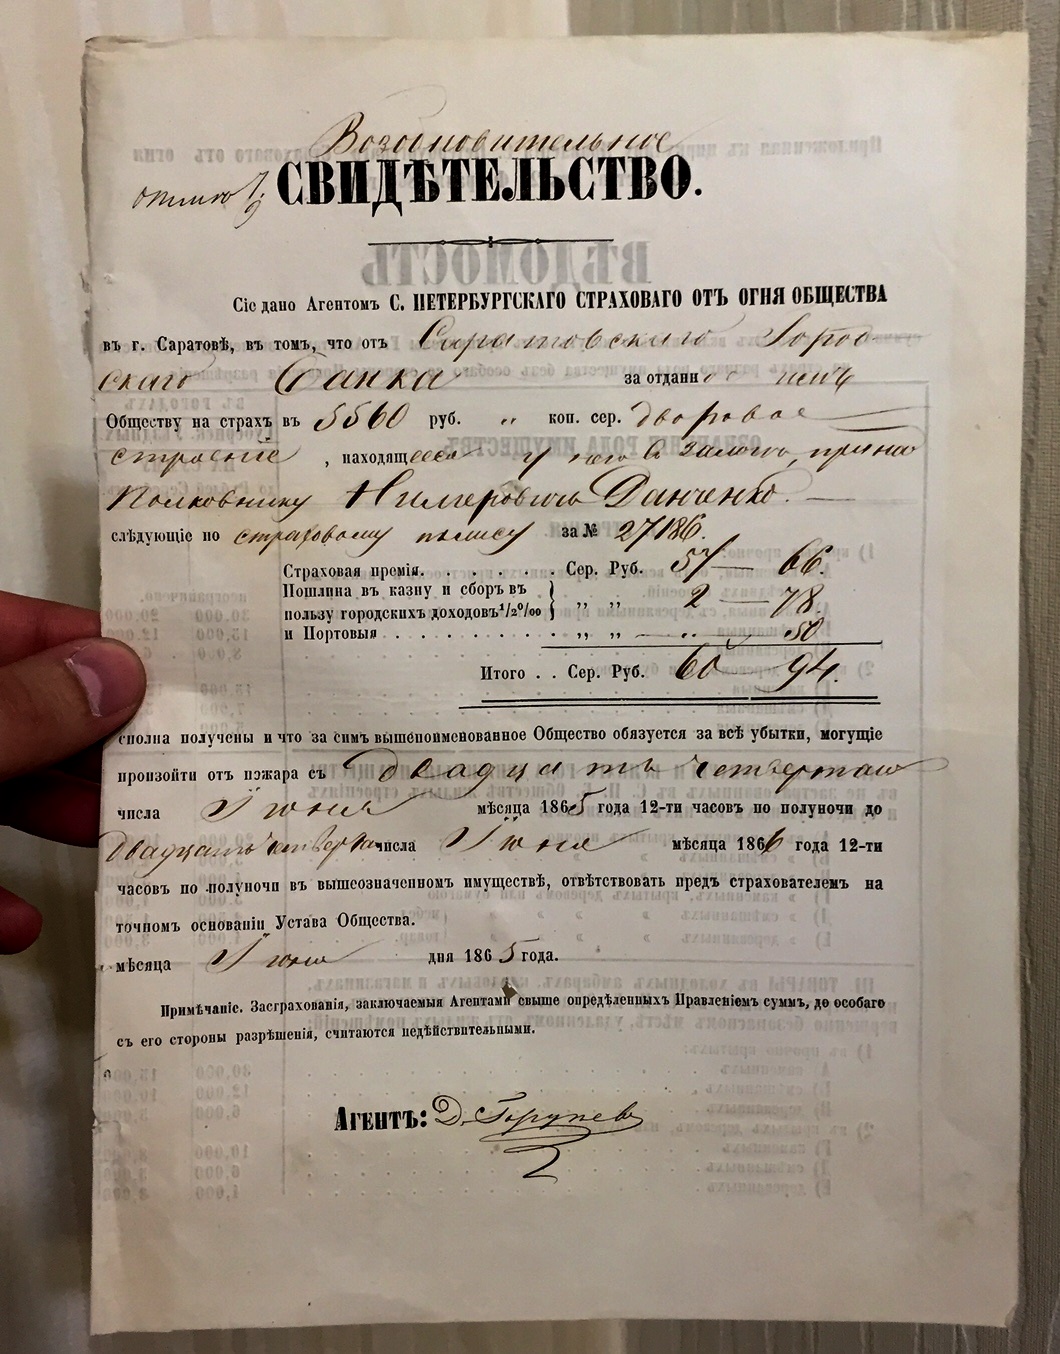 Возобновительное
СВИДѢТЕЛЬСТВО.
Сіе дано Агентомъ С. ПЕТЕРБУРГСКАГО СТРАХОВАГО ОТЪ ОГНЯ ОБЩЕСТВА
въ г. Саратовѣ, въ томъ, что отъ Саратовскаго Город-
скаго Банка за отданное имъ
Обществу на страхъ въ 5560 руб. „ коп. сер. дворовое
строеніе, находящееся у него въ залогѣ, прина
Полковнику Данченко.
слѣдующіе по страховому полису за № 27186.
Страховая премія. . . . . . Сер. Руб. 57 — 66.
Пошлина въ казну и сборъ въ
пользу городскихъ доходовъ ½ 0/00 } „ „ 2 — 78.
и Портовыя . . . . . . . . . . „ „ — „ — 50
Итого . . Сер. Руб. 60 — 94.
сполна получены и что за симъ вышепоименованное Общество обязуется за всѣ убытки, могущіе
произойти отъ пожара съ двадцать четвертаго
числа Іюня мѣсяца 1865 года 12-ти часовъ по полуночи до
двадцать четвертаго числа Іюня мѣсяца 1866 года 12-ти
часовъ по полуночи въ вышеозначенномъ имуществѣ, отвѣтствовать предъ страхователемъ на
точномъ основаніи Устава Общества.
мѣсяца Іюня дня 1865 года.
Примѣчаніе. Застрахованія, заключаемыя Агентами свыше опредѣленныхъ Правленіемъ суммъ, до особаго
съ его стороны разрѣшенія, считаются недѣйствительными.
Агентъ: Д.